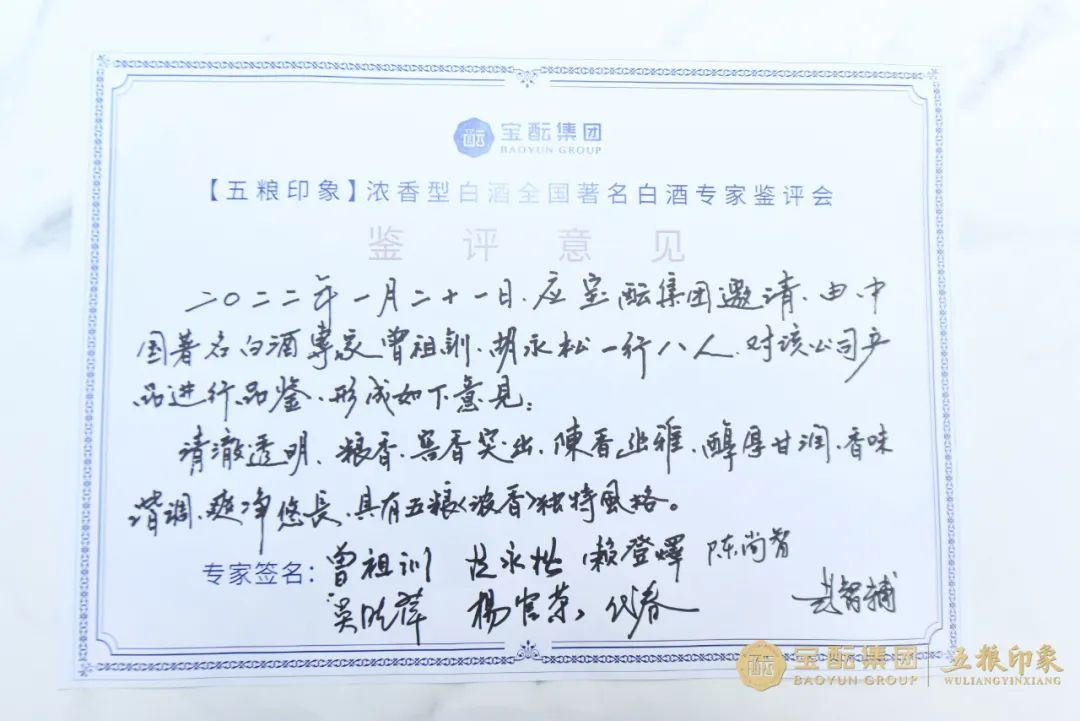 宝酝集团
BAOYUN GROUP
【五粮印象】浓香型白酒全国著名白酒专家鉴评会
鉴评意见
二〇二二年一月二十一日、应宝酝集团邀请、由中
国著名白酒專家曾祖訓、胡永松一行八人、对该公司产
品进行品鉴、形成如下意见：
清澈透明、粮香、窖香突出、陳香幽雅、醇厚甘润、香味
谐调、爽净悠長、具有五粮〈浓香〉独特風格。
专家签名：曾祖训 胡永松 赖登燡 陈尚智
吴晓萍 楊官荣 代春
宝酝集团 五粮印象
BAOYUN GROUP WULIANGYINXIANG